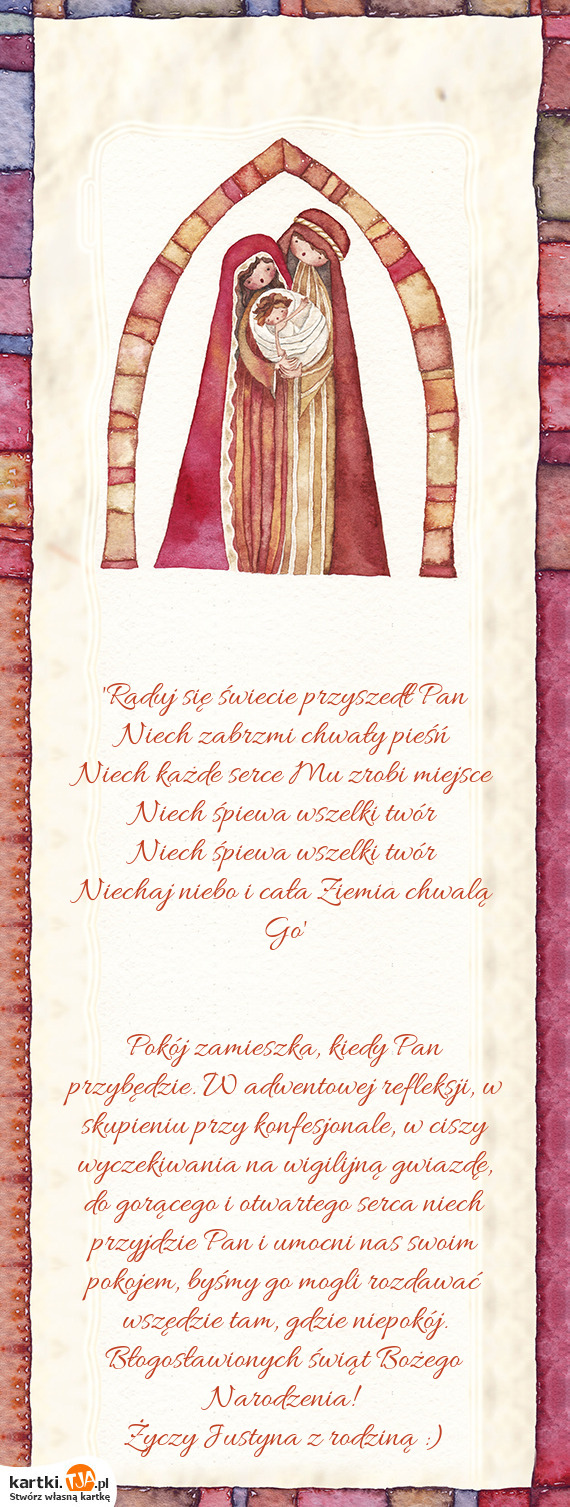 'Raduj się świecie przyszedł Pan
Niech zabrzmi chwały pieśń
Niech każde serce Mu zrobi miejsce
Niech śpiewa wszelki twór
Niech śpiewa wszelki twór
Niechaj niebo i cała Ziemia chwalą
Go'
Pokój zamieszka, kiedy Pan
przybędzie. W adwentowej refleksji, w
skupieniu przy konfesjonale, w ciszy
wyczekiwania na wigilijną gwiazdę,
do gorącego i otwartego serca niech
przyjdzie Pan i umocni nas swoim
pokojem, byśmy go mogli rozdawać
wszędzie tam, gdzie niepokój.
Błogosławionych świąt Bożego
Narodzenia!
Życzy Justyna z rodziną :)
kartki.TJA.pl
Stwórz własną kartkę